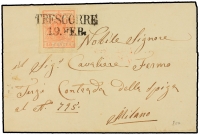 TRESCORRE
19. FEB.
Nobile Signore
al Sig. Cavaliere Fermo
Terzi Contrada della Spiga
al N. 795.
Milano